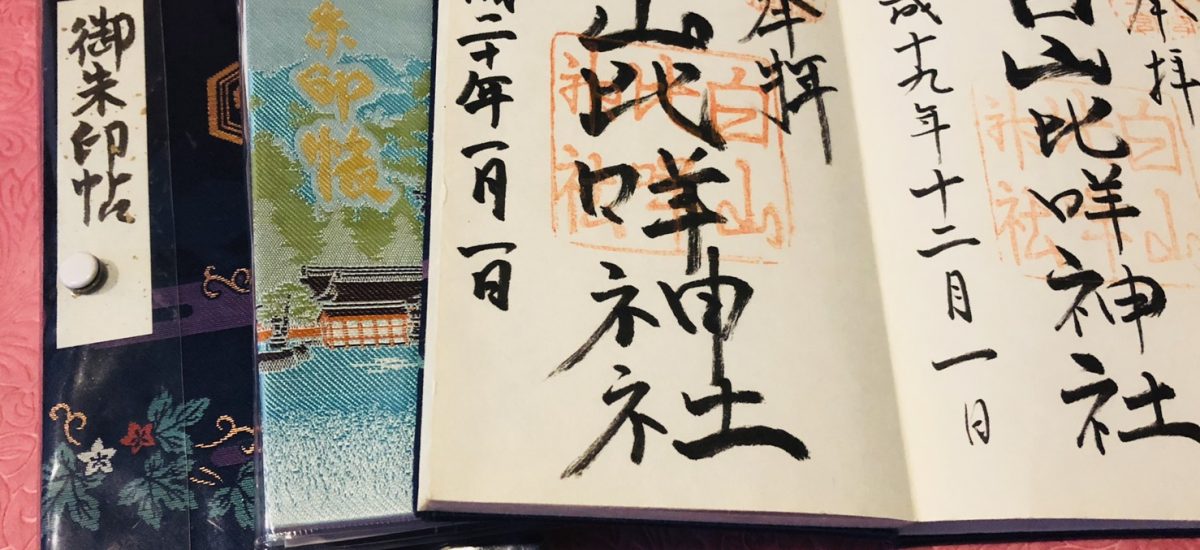 御朱印帖
朱印帳
奉拝
山比咩神社
成二十年一月一日
白山
比咩
神社
奉拝
白山比咩神社
成十九年十二月一日
白山
比咩
神社